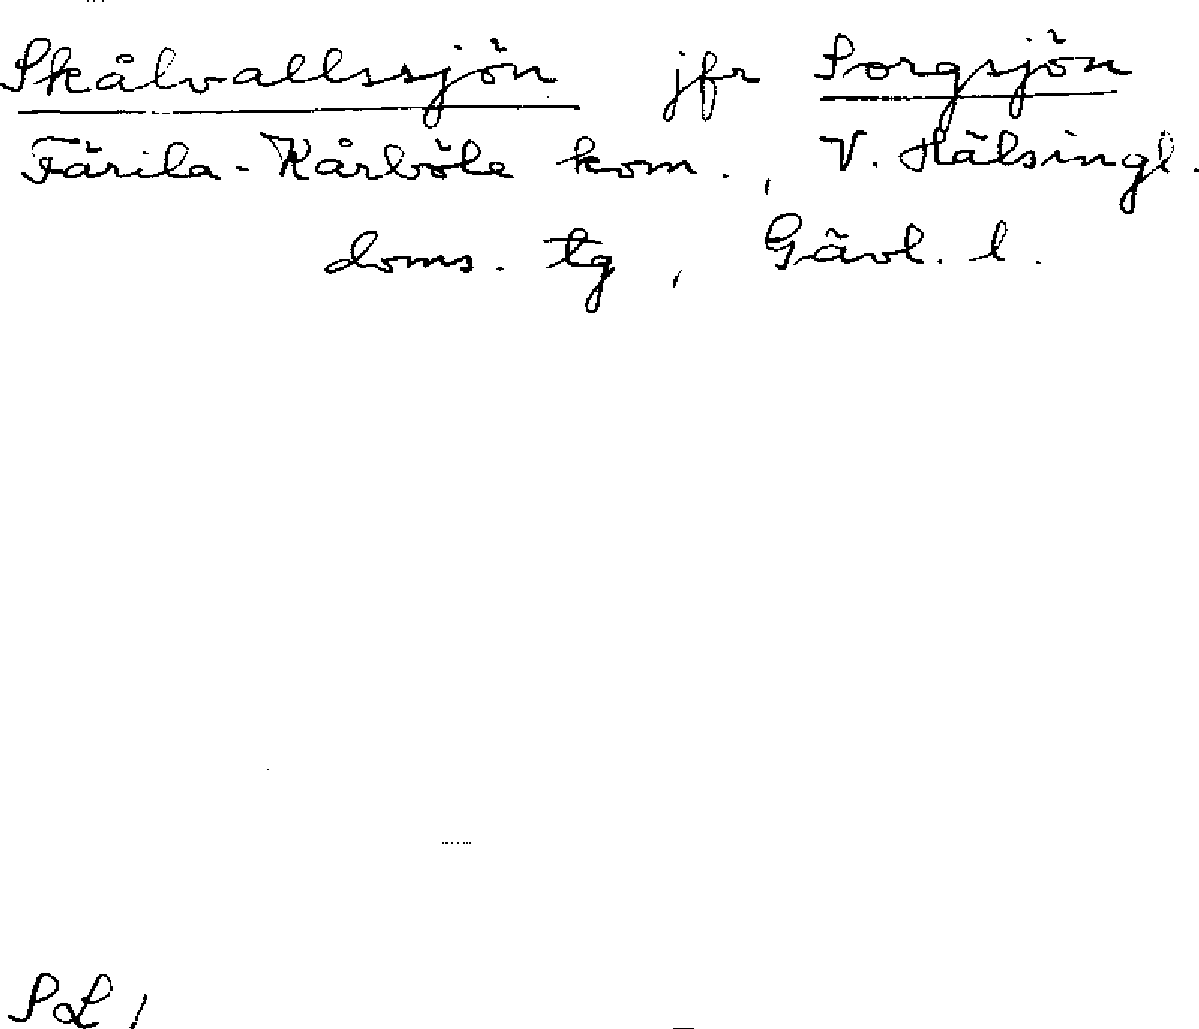 Skålvallssjön jfr Sorgsjön
Färila-Kårböle kom., V. Hälsingl.
doms. tg, Gävl. l.
SL